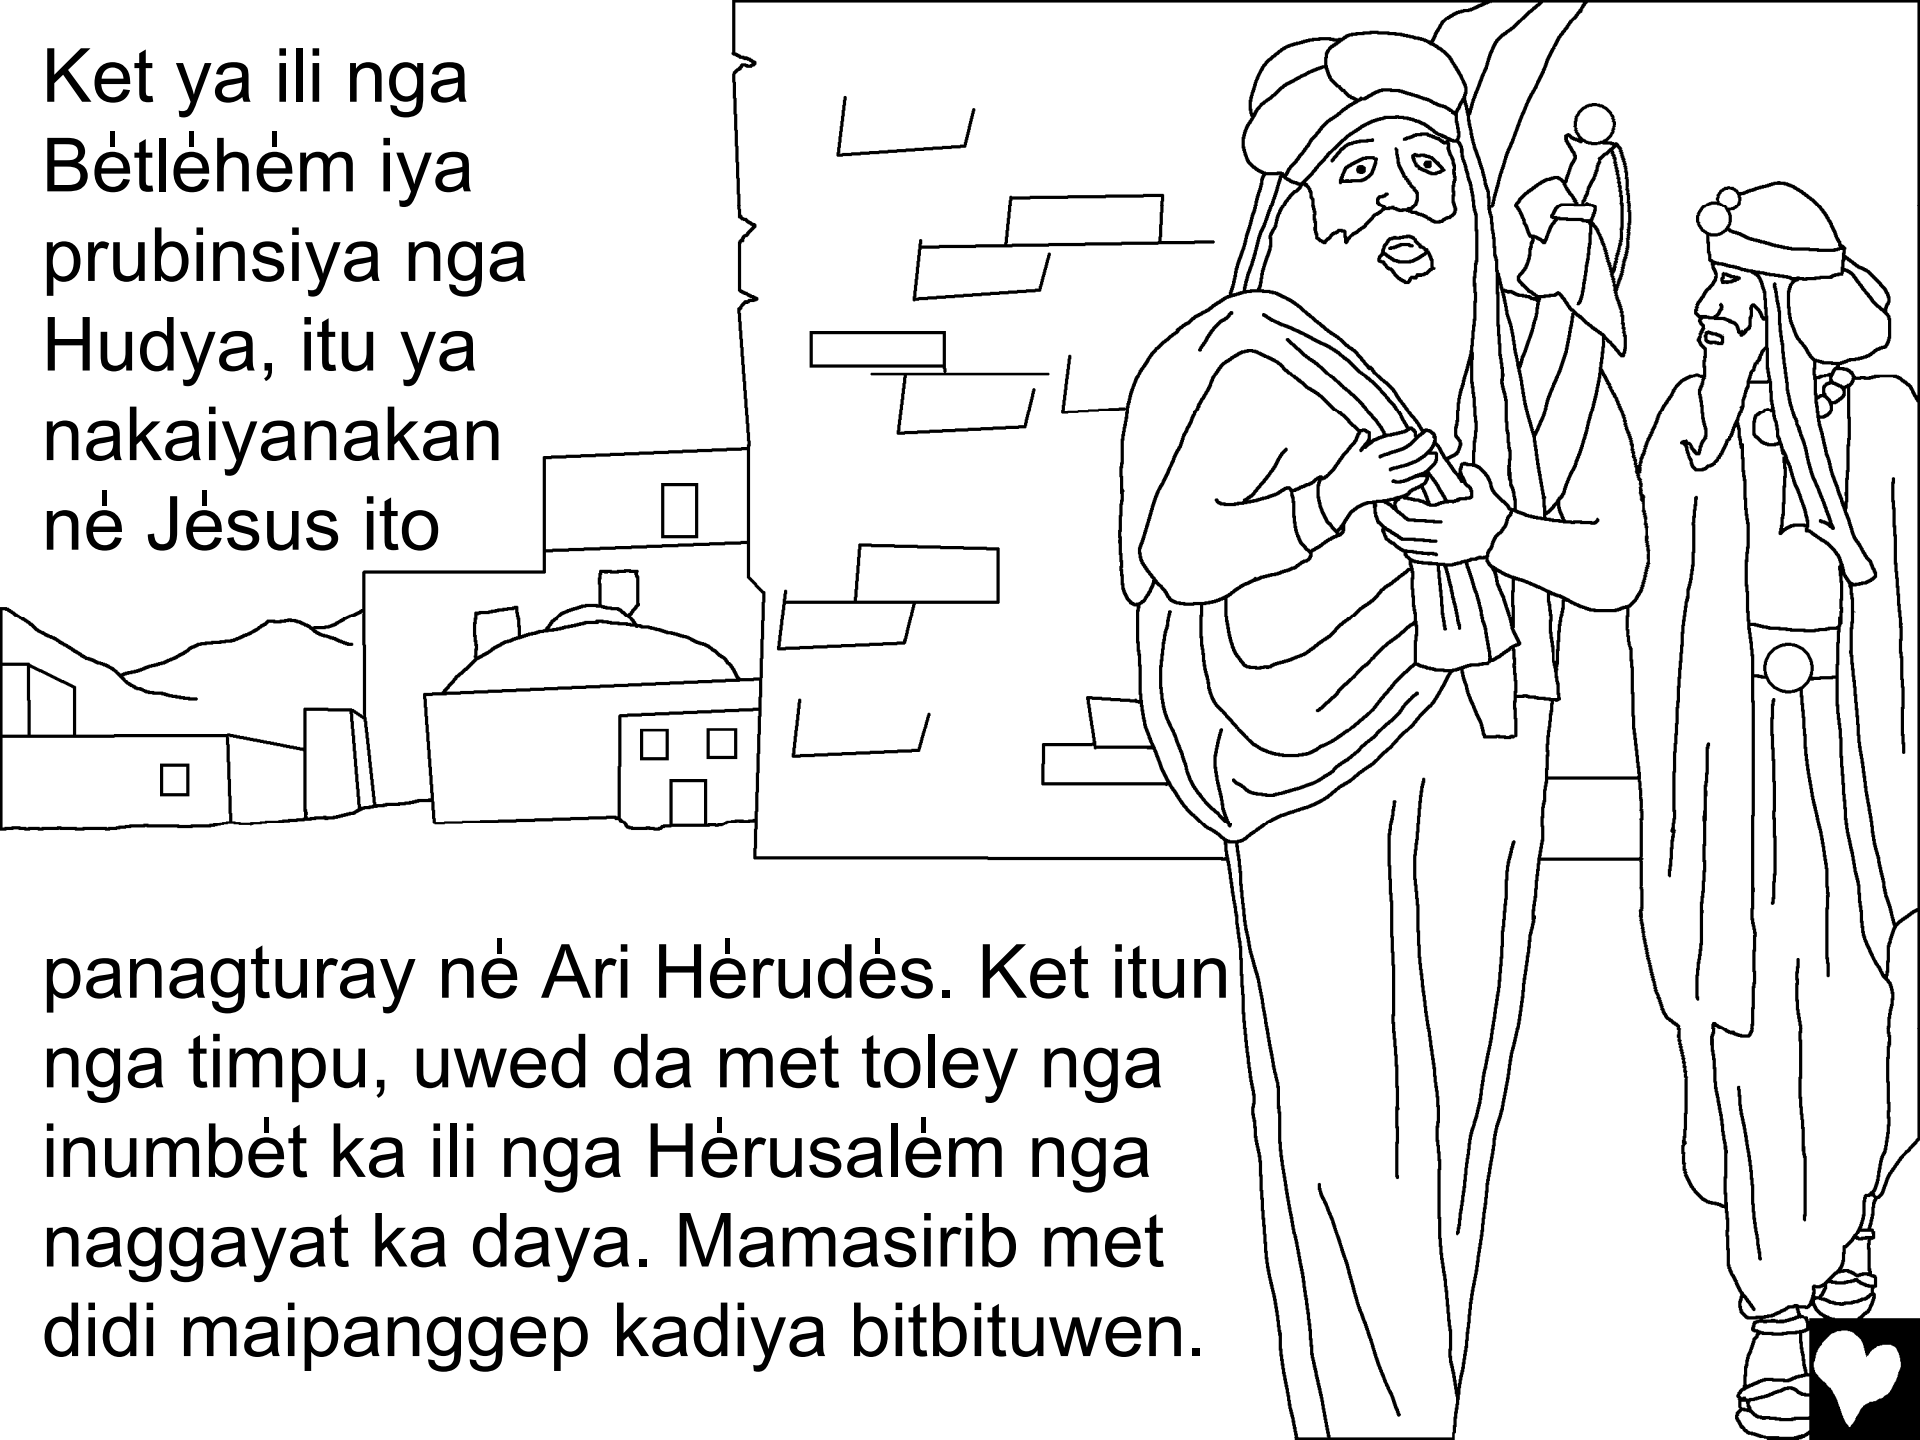 Ket ya ili nga
Bė́tlė́hė́m iya
prubinsiya nga
Hudya, itu ya
nakaiyanakan
nė́ Jė́sus ito
panagturay nė́ Ari Hė́rudė́s. Ket itun
nga timpu, uwed da met toley nga
inumbė́t ka ili nga Hė́rusalė́m nga
naggayat ka daya. Mamasirib met
didi maipanggep kadiya bitbituwen.